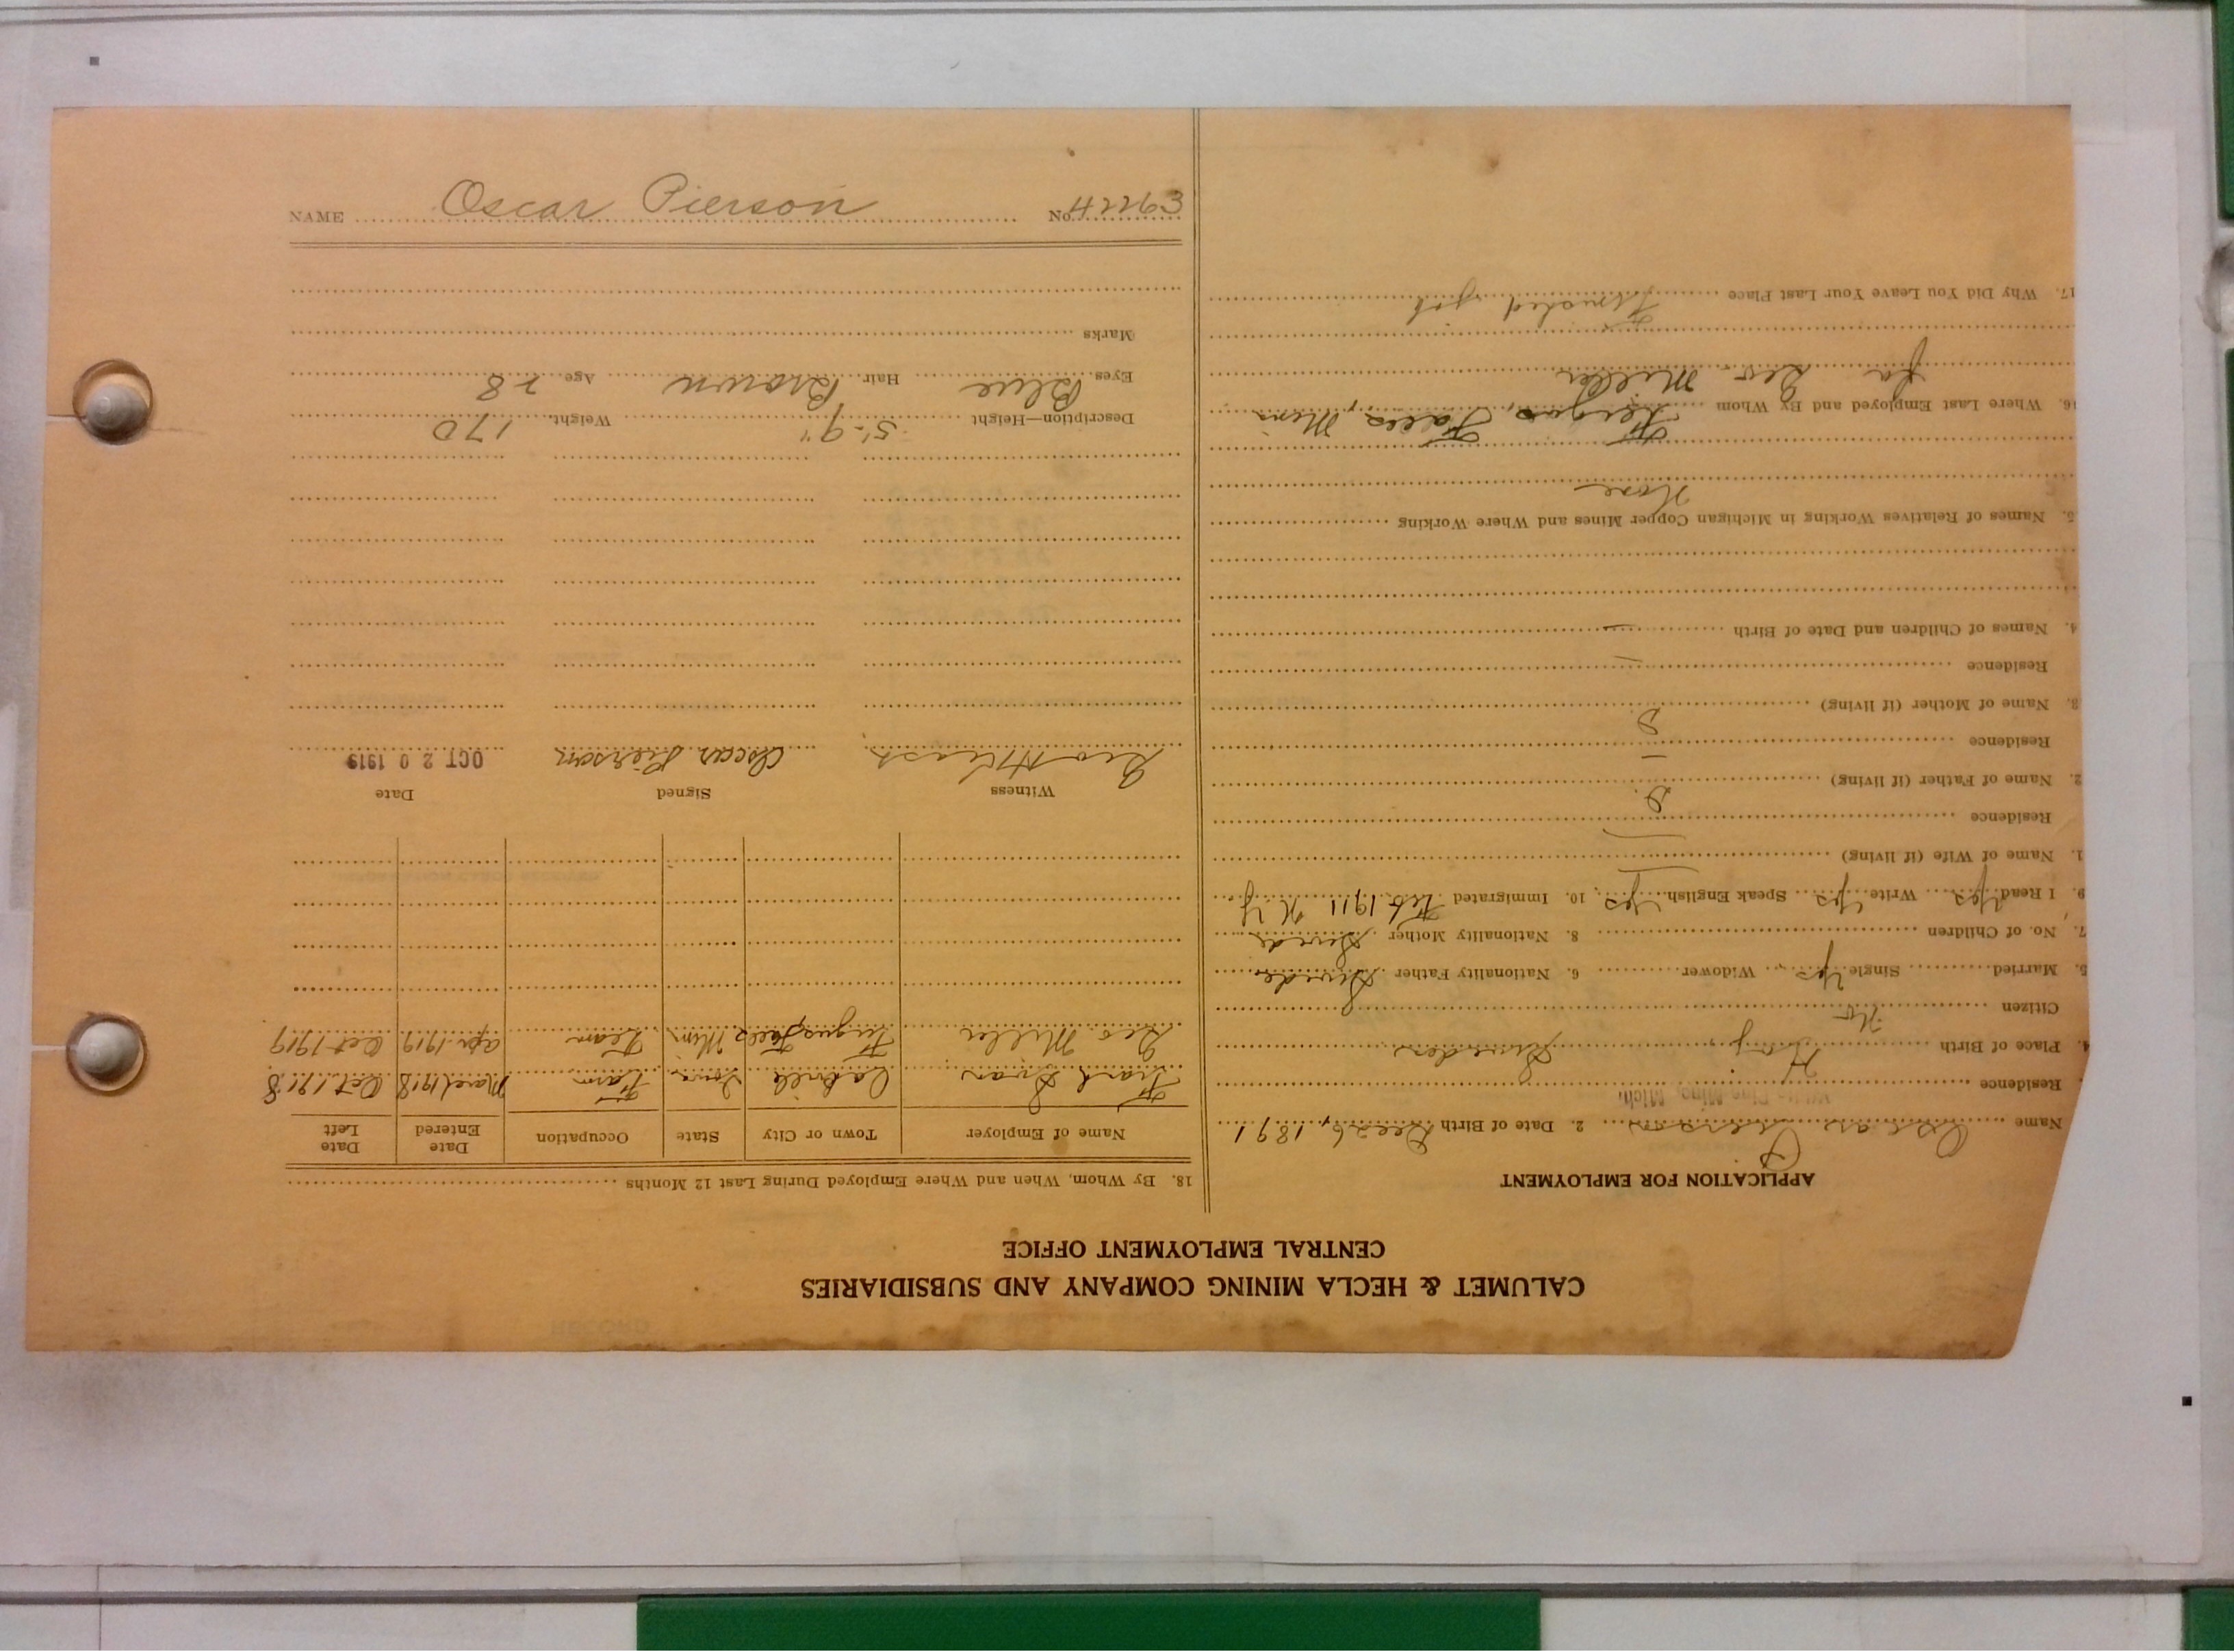 CALUMET & HECLA MINING COMPANY AND SUBSIDIARIES
CENTRAL EMPLOYMENT OFFICE
APPLICATION FOR EMPLOYMENT
Name Oscar Pierson 2. Date of Birth Dec 26, 1891
Residence White Pine Mine, Mich.
4. Place of Birth Sweden
Citizen No
5. Married Single Yes Widower 6. Nationality Father Swede
7. No. of Children 8. Nationality Mother Swede
9. I Read Yes Write Yes Speak English Yes 10. Immigrated Feb 1911 N Y
1. Name of Wife (if living) —
Residence —
2. Name of Father (if living) D.
Residence —
3. Name of Mother (if living) D.
Residence —
4. Names of Children and Date of Birth —
5. Names of Relatives Working in Michigan Copper Mines and Where Working
None
16. Where Last Employed and By Whom Fergus Falls, Minn
for Geo Miller
17. Why Did You Leave Your Last Place Finished job
18. By Whom, When and Where Employed During Last 12 Months
Name of Employer Town or City State Occupation Date Entered Date Left
Frank Swan Iowa Farm March 1918 Oct. 1918
Geo Miller Fergus Falls Minn Team Apr. 1919 Oct 1919
Witness Signed Date
Geo Oscar Pierson OCT 20 1919
Description—Height 5'-9" Weight 170
Eyes Blue Hair Brown Age 28
Marks
NAME Oscar Pierson No. 42263